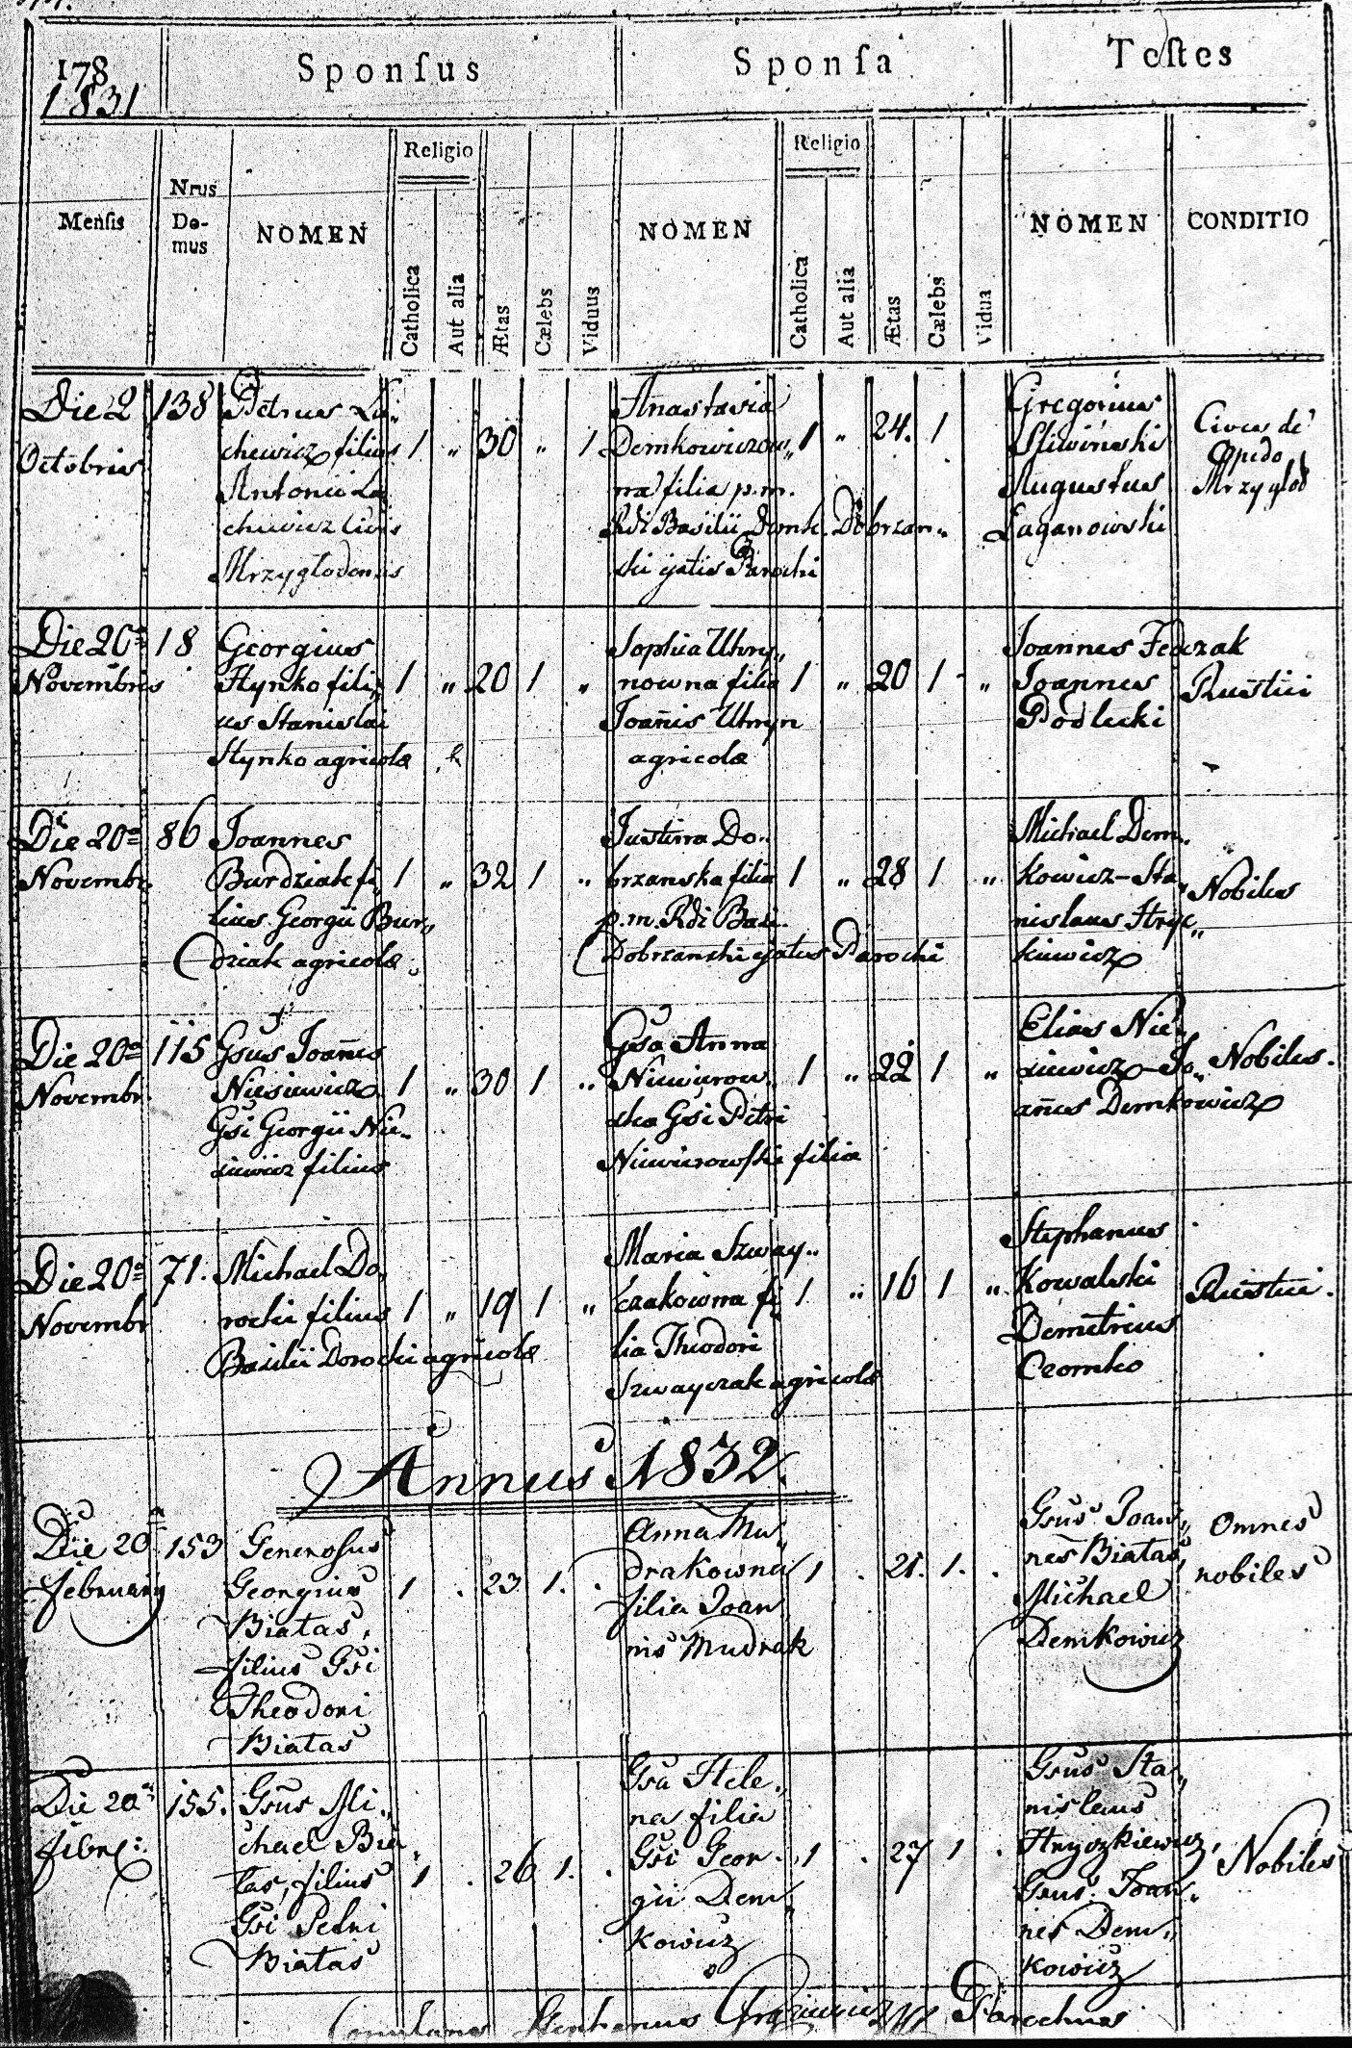 178
1831
Sponsus
Sponsa
Testes
Mensis
Nrus
Do-
mus
NOMEN
Religio
Catholica
Aut alia
Ætas
Cælebs
Viduus
NOMEN
Religio
Catholica
Aut alia
Ætas
Cælebs
Vidua
NOMEN
CONDITIO
Die 2
Octobris
138
Petrus La„
chewicz filius
Antonii La
chewicz Civis
Mrzyglodensis
1 „ 30 „ 1
Anastasia
Demkowiczow„
na filia p.m.
Rdi Basilii Demk. Dobrzan„
ski ejatis Parochi
1 „ 24. 1
Gregorius
Sliwinski
Augustus
Laganowski
Cives de
Opido
Mrzyglod
Die 20a
Novembris
18
Georgius
Hynko fili„
us Stanislai
Hynko agricolæ
1 „ 20 1 „
Sophia Uhry„
nowna filia
Joanis Uhryn
agricolæ
1 „ 20 1 „
Joannes Fedczak
Joannes
Podlucki
Rustici
Die 20a
Novembr.
86
Joannes
Burdziak fi„
lius Georgii Bur„
dziak agricolæ
1 „ 32 1 „
Justina Do„
brzanska filia
p.m. Rdi Basi.
Dobrzanski ejatis Parochi
1 „ 28 1 „
Michael Dem„
kowicz-Sta„
nislaus Hryc„
kiewicz
Nobiles
Die 20a
Novembr.
115
Gsus Joanes
Niesiewicz
Gsi Georgii Nie„
siewicz filius
1 „ 30 1 „
Gsa Anna
Niewiarow„
ska Gsi Petri
Niewiarowski filia
1 „ 22 1 „
Elias Nie„
siewicz-Jo„
anes Demkowicz
Nobiles.
Die 20a
Novembr
71.
Michael Do„
rocki filius
Basilii Dorocki agricolæ
1 „ 19 1 „
Maria Szway„
czakowna fi„
lia Theodori
Szwayczak agricolæ
1 „ 16 1 „
Stephanus
Kowalski
Demetrius
Czomko
Rustici.
Annus 1832.
Die 20
February
153
Generosus
Georgius
Biatas,
filius Gsi
Theodori
Biatas
1 . 23 1. .
Anna Mu„
drakowna
filia Joan
nis Mudrak
1 . 21. 1. .
Gsus Joan„
nes Biatas,
Michael
Demkowicz
Omnes
nobiles
Die 20
febr:
155.
Gsus Mi„
chael Bia„
tas, filius
Gsi Petri
Biatas
1 . 26 1. .
Gsa Hele„
na filia
Gsi Geor„
gii Dem„
kowicz
1 . 27 1 .
Gsus Sta„
nislaus
Hryczkiewicz,
Gsus Joan„
nes Dem„
kowicz
Nobiles
Stephanus
Parochus